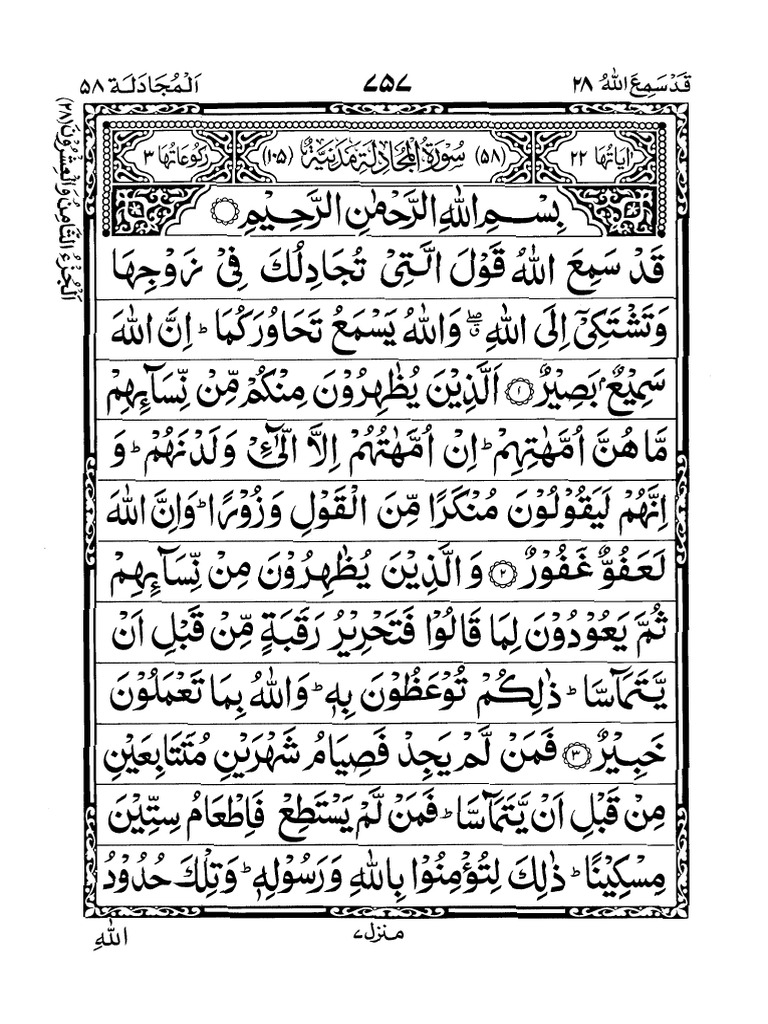 قَدْ سَمِعَ اللّٰهُ ٢٨
٧٥٧
اَلْمُجَادَلَة ٥٨
اَلْجُزْءُ الثَّامِنُ وَالْعِشْرُوْنَ (٢٨)
اٰيَاتُهَا ٢٢
(٥٨) سُوْرَةُ الْمُجَادِلَةِ مَدَنِيَّةٌ (١٠٥)
رُكُوْعَاتُهَا ٣
بِسْمِ اللّٰهِ الرَّحْمٰنِ الرَّحِيْمِ
قَدْ سَمِعَ اللّٰهُ قَوْلَ الَّتِيْ تُجَادِلُكَ فِيْ زَوْجِهَا
وَتَشْتَكِيْٓ اِلَى اللّٰهِ ۖ وَاللّٰهُ يَسْمَعُ تَحَاوُرَكُمَا ؕ اِنَّ اللّٰهَ
سَمِيْعٌۢ بَصِيْرٌ ﴿١﴾ اَلَّذِيْنَ يُظٰهِرُوْنَ مِنْكُمْ مِّنْ نِّسَآئِهِمْ
مَّا هُنَّ اُمَّهٰتِهِمْ ؕ اِنْ اُمَّهٰتُهُمْ اِلَّا الّٰٓـِٔيْ وَلَدْنَهُمْ ؕ وَ
اِنَّهُمْ لَيَقُوْلُوْنَ مُنْكَرًا مِّنَ الْقَوْلِ وَزُوْرًا ؕ وَاِنَّ اللّٰهَ
لَعَفُوٌّ غَفُوْرٌ ﴿٢﴾ وَالَّذِيْنَ يُظٰهِرُوْنَ مِنْ نِّسَآئِهِمْ
ثُمَّ يَعُوْدُوْنَ لِمَا قَالُوْا فَتَحْرِيْرُ رَقَبَةٍ مِّنْ قَبْلِ اَنْ
يَّتَمَآسَّا ؕ ذٰلِكُمْ تُوْعَظُوْنَ بِهٖ ؕ وَاللّٰهُ بِمَا تَعْمَلُوْنَ
خَبِيْرٌ ﴿٣﴾ فَمَنْ لَّمْ يَجِدْ فَصِيَامُ شَهْرَيْنِ مُتَتَابِعَيْنِ
مِنْ قَبْلِ اَنْ يَّتَمَآسَّا ؕ فَمَنْ لَّمْ يَسْتَطِعْ فَاِطْعَامُ سِتِّيْنَ
مِسْكِيْنًا ؕ ذٰلِكَ لِتُؤْمِنُوْا بِاللّٰهِ وَرَسُوْلِهٖ ؕ وَتِلْكَ حُدُوْدُ
منزل ٧
اللّٰهِ